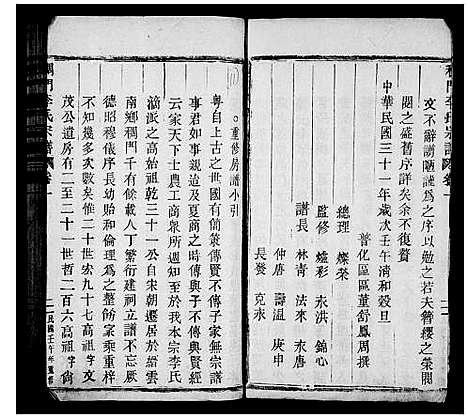 文不辭謭陋謹為之序以勉之若夫簪纓之榮閥
閱之盛舊序詳矣余不復贅
中華民國三十一年歲次壬午清和穀旦
普化區區董舒鳳周撰
總理 燦榮
監修 爐彩 永洪 錦心
譜長 林青 法來 永唐
仲唐 壽溫 庚申
吳發 克永
重修房譜小引
粵自上古之世國有前言往行垂訓子家無宗譜
事君如事親追及夏商之時傳與子不傳與賢經
云家天下士農工商眾所週知至於我本宗李氏
滴派之始祖乾三十一公自宋朝遷居於縉雲
南鄉稠門千有餘載人丁繁衍建祠立譜不忘厥
德昭穆儀序長幼和倫理爲之整齊矣乘重梓
不知次數矣惟二十二世宏九十七高祖字文
茂公遺房有二至三十一世哲二百六高祖字尚
稠門李氏宗譜
卷一
民國壬午年重修